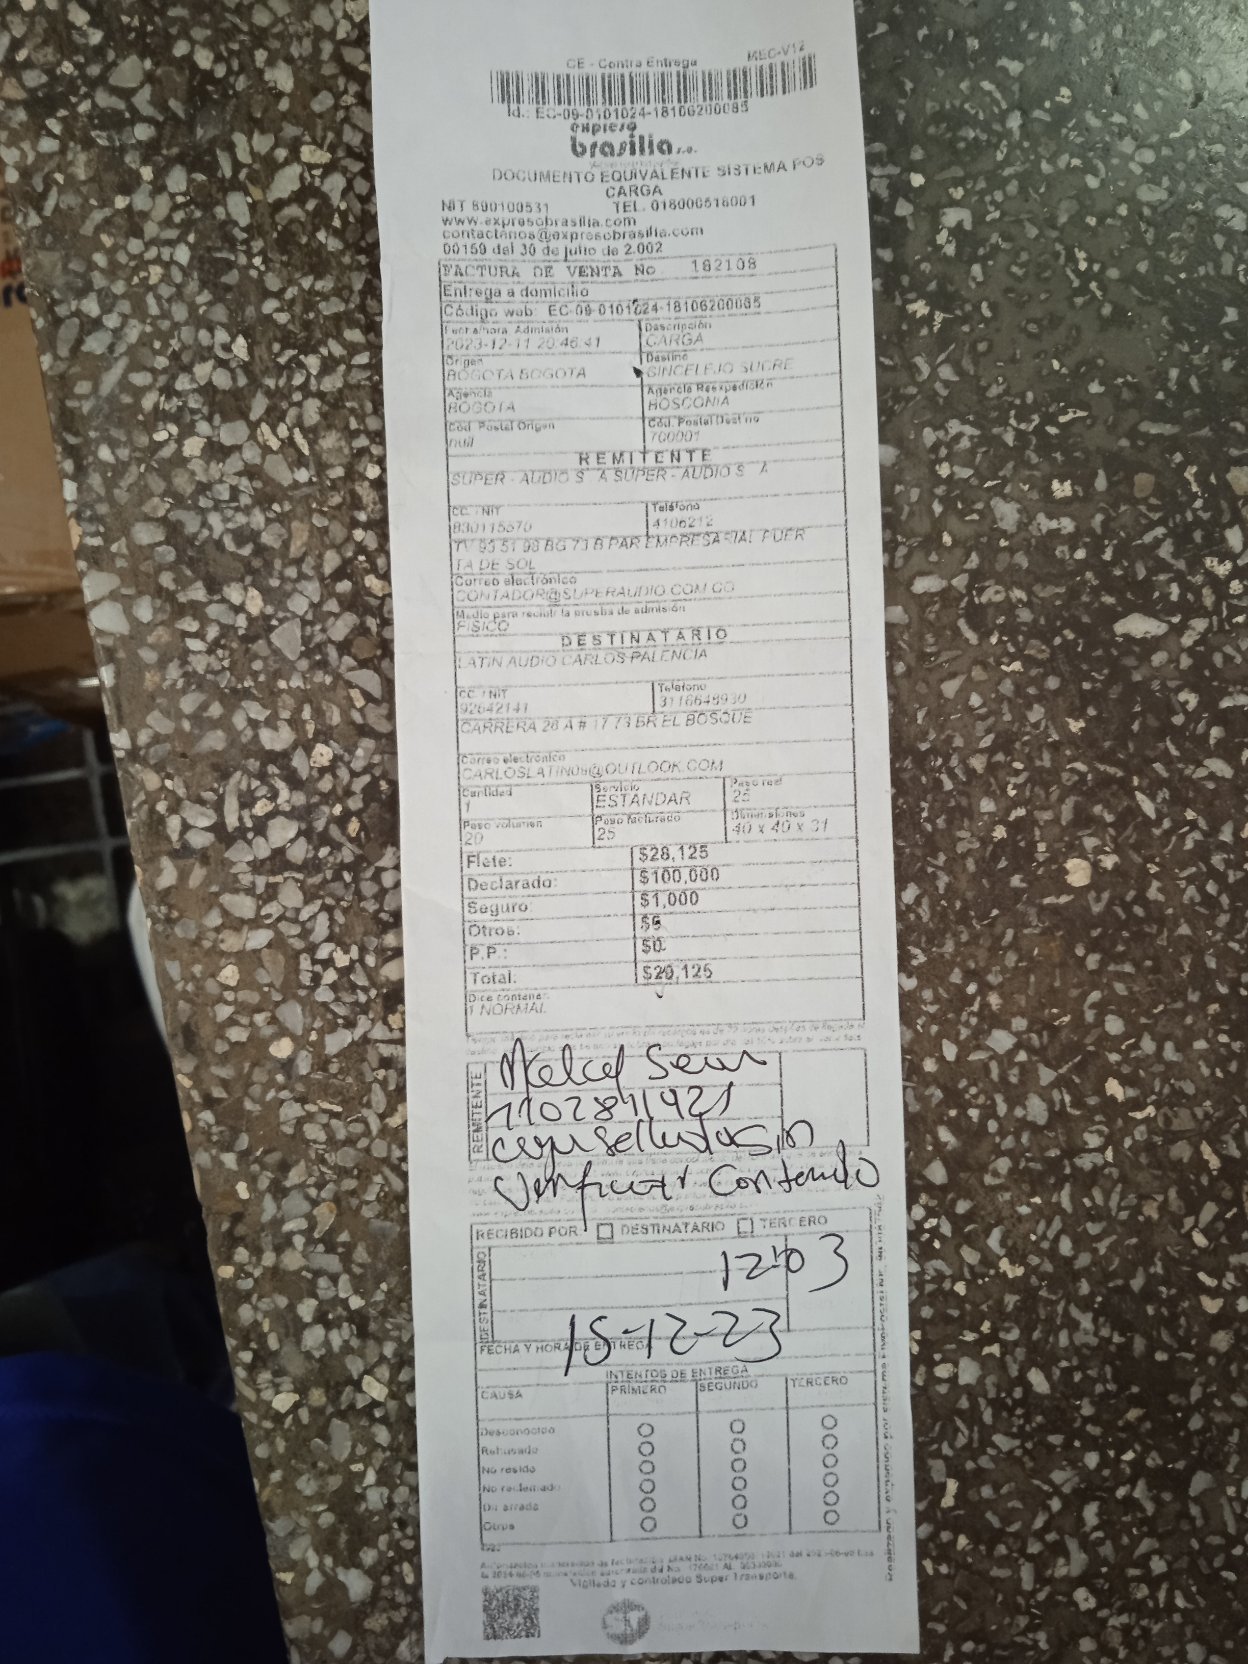 CE - Contra Entrega MEC-V12
Id.: EC-09-0101024-18106200085
expreso
brasilia s.a.
DOCUMENTO EQUIVALENTE SISTEMA POS
CARGA
NIT 890100531 TEL. 018000518001
www.expresobrasilia.com
contactanos@expresobrasilia.com
00159 del 30 de julio de 2.002
FACTURA DE VENTA No 182108
Entrega a domicilio
Código web: EC-09-0101024-18106200085
Fecha/hora Admisión Descripción
2023-12-11 20:46:41 CARGA
Origen Destino
BOGOTA BOGOTA SINCELEJO SUCRE
Agencia Agencia Reexpedición
BOGOTA BOSCONIA
Cód. Postal Origen Cód. Postal Destino
null 700001
REMITENTE
SUPER - AUDIO S A SUPER - AUDIO S A
CC. / NIT Teléfono
830115570 4106212
TV 93 51 98 BG 73 B PAR EMPRESARIAL PUER
TA DE SOL
Correo electrónico
CONTADOR@SUPERAUDIO.COM.CO
Medio para recibir la prueba de admisión
FISICO
DESTINATARIO
LATIN AUDIO CARLOS PALENCIA
CC. / NIT Teléfono
92642141 3116648930
CARRERA 26 A # 17 73 BR EL BOSQUE
Correo electrónico
CARLOSLATIN08@OUTLOOK.COM
Cantidad Servicio Peso real
1 ESTANDAR 25
Peso volumen Peso facturado Dimensiones
20 25 40 x 40 x 31
Flete: $28,125
Declarado: $100,000
Seguro: $1,000
Otros:
P.P.: $0
Total: $29,125
Dice contener:
1 NORMAL
REMITENTE
1102841921
sin
Verificar Contenido
RECIBIDO POR: DESTINATARIO TERCERO
DESTINATARIO
12:03
15-12-23
FECHA Y HORA DE ENTREGA
INTENTOS DE ENTREGA
CAUSA PRIMERO SEGUNDO TERCERO
Desconocido
Rehusado
No reside
No reclamado
Dir errada
Otros
Vigilado y controlado Super Transporte.